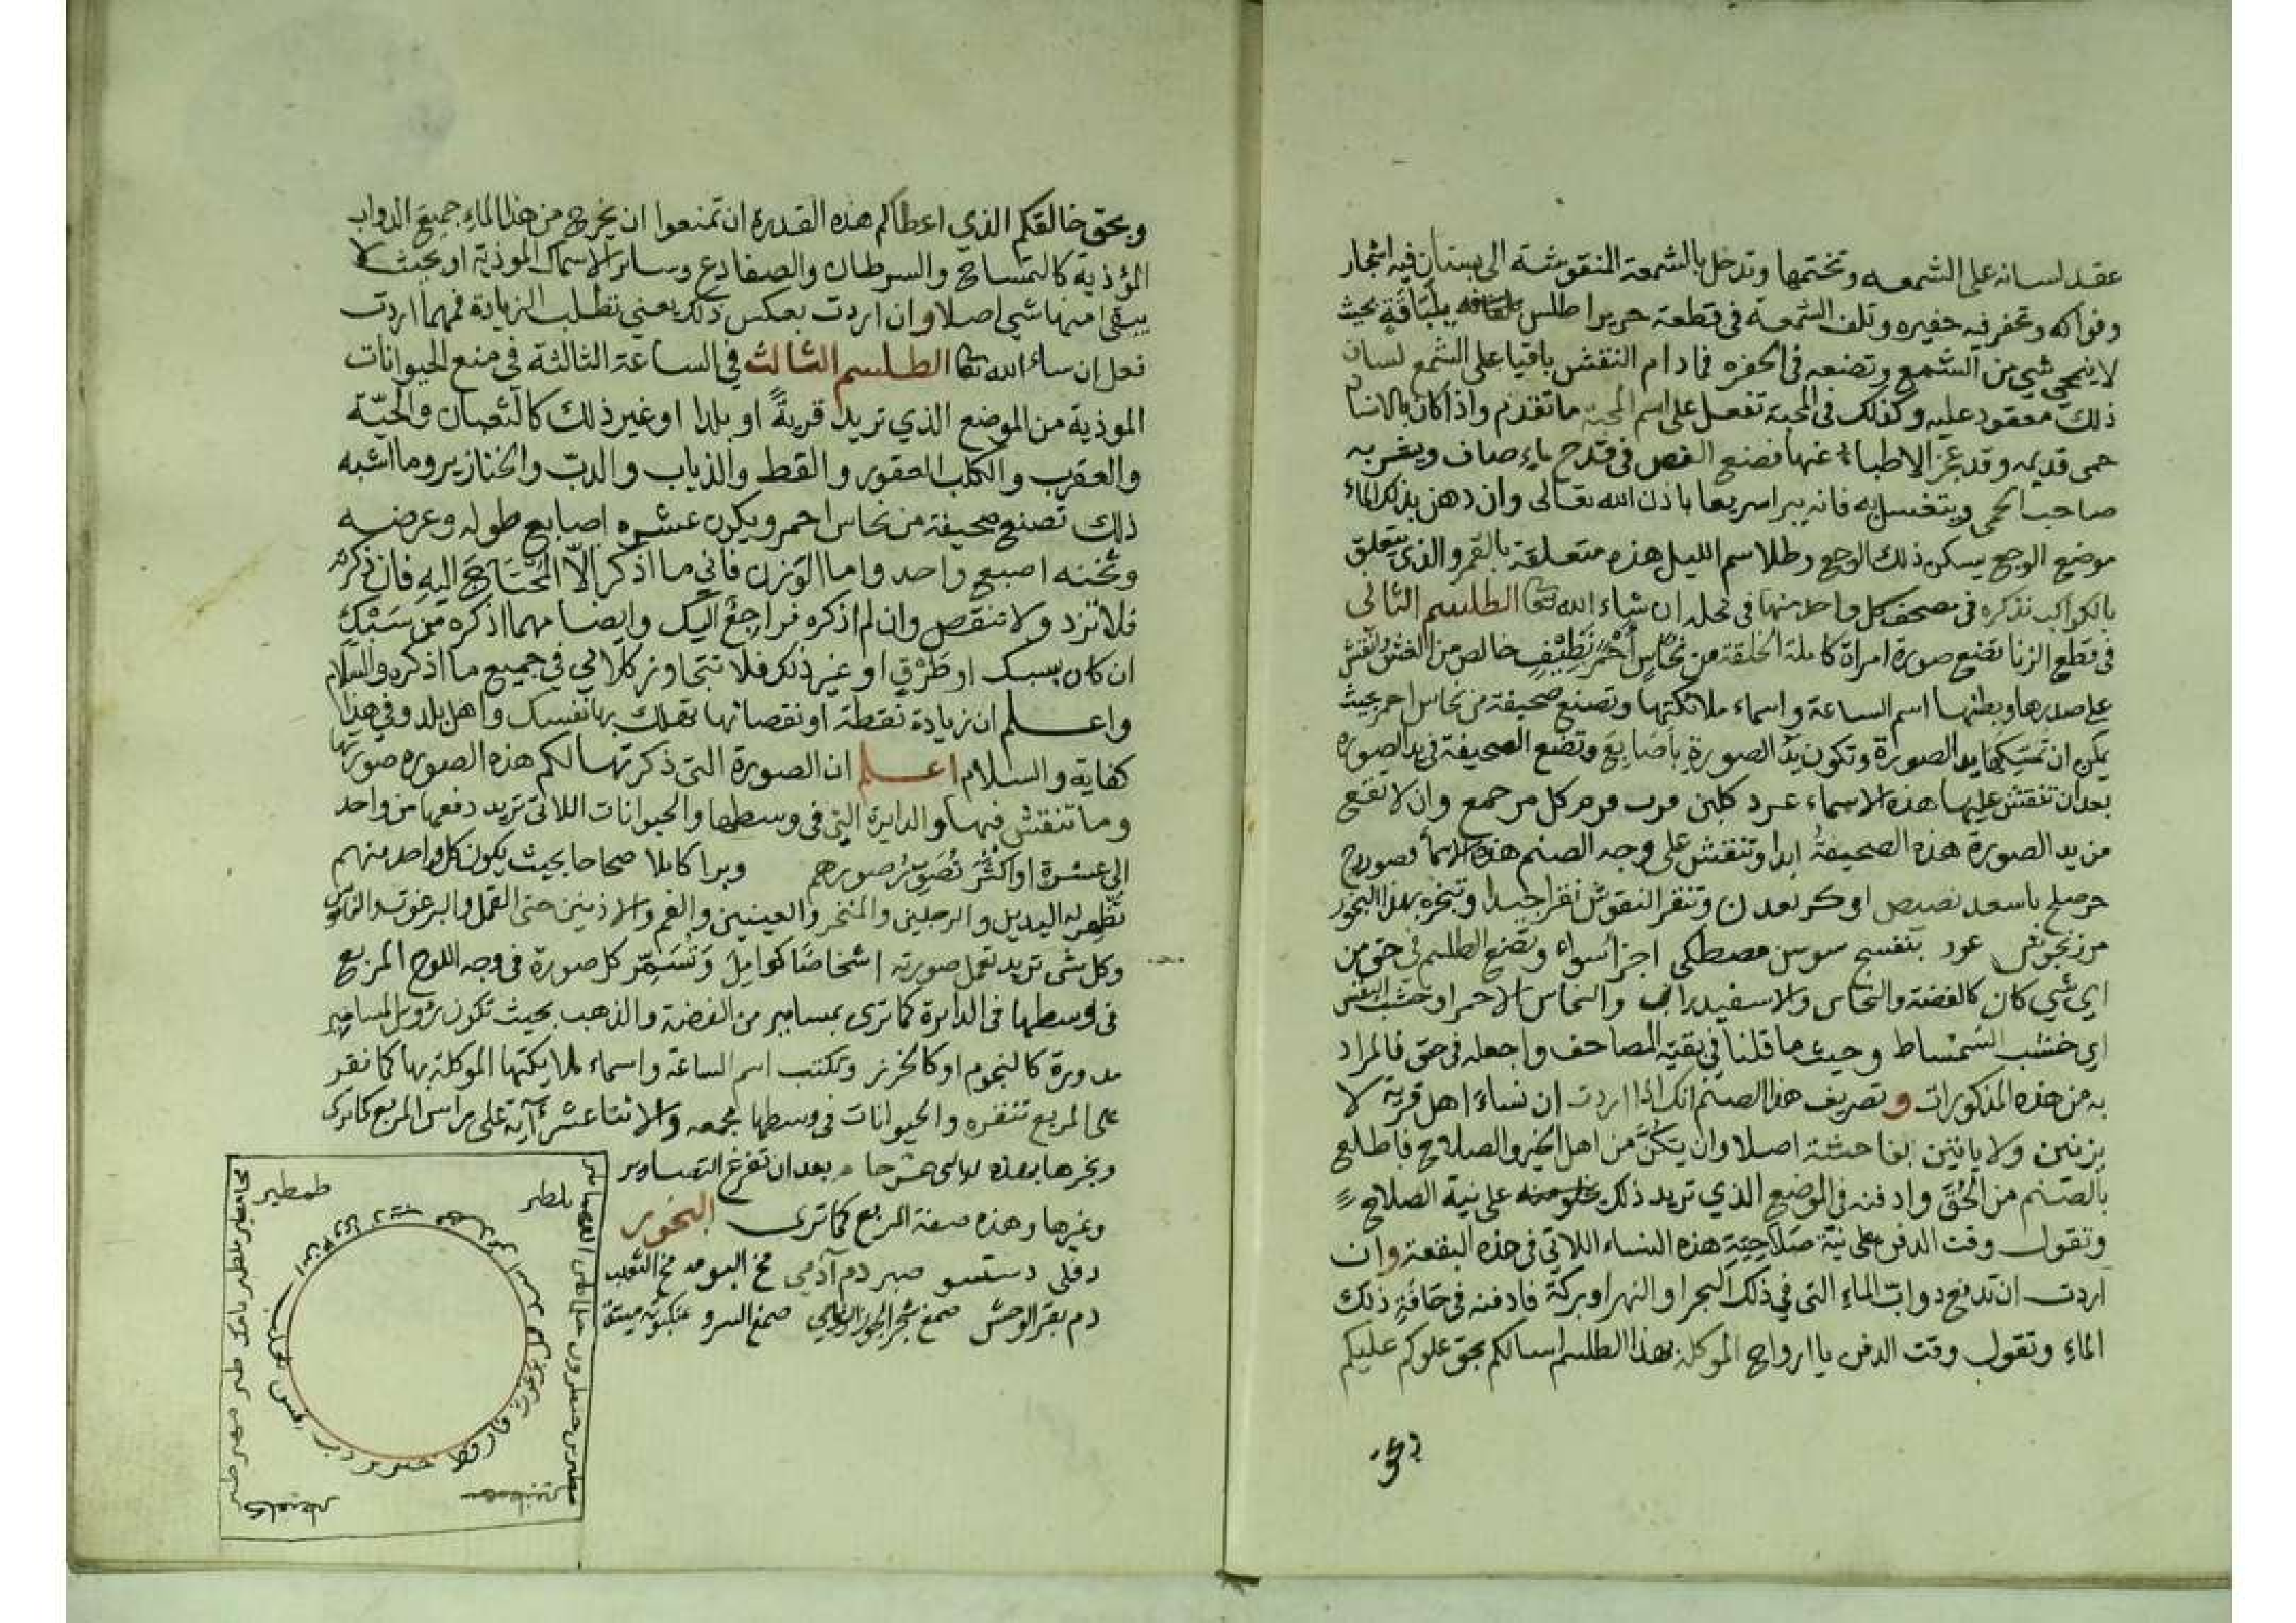 عقد لسانه على الشمعه وتختمها وتدخل بالشمعة المنقوشة الى بستان فيه اشجار
وفواكه وتحفر فيه حفيره وتلف الشمعة في قطعة حرير اطلس بلباقة بحيث
لا ينمحي شي من الشمع وتضعه في الحفره فمادام النقش باقيا على الشمع لسان
ذلك معقود عليه وكذلك في المحبة تفعل على اسم المحبه ما تقدم واذا كان بالانسان
حمى قديمه وقد عجز الاطباء عنها فضع الفص في قدح ماء صاف ويشربه
صاحب الحمى ويتغسل به فانه يبرا سريعا باذن الله تعالى وان دهن بذلك الماء
موضع الوجع يسكن ذلك الوجع وطلاسم الليل هذه متعلقة بالقمر والذي يتعلق
بالكواكب نذكره في مصحف كل واحد منها في محله ان شاء الله تعالى الطلسم الثاني
في قطع الزنا تضع صورة امراة كاملة الخلقة من نحاس احمر نظيف خالص من الغش وتنقش
على صدرها وبطنها اسم الساعة واسماء ملائكتها وتصنع صحيفة من نحاس احمر بحيث
يمكن ان تمسكها يد الصورة وتكون يد الصورة باصابع وتضع الصحيفة في يد الصوره
بعد ان تنقش عليها هذه الاسماء وان لا تقع
من يد الصورة هذه الصحيفة ابدا وتنقش على وجه الصنم هذه الاسما
وتنقر النقوش نقرا جيدا وتبخره بهذا البخور
مرزنجوش عود بنفسج سوسن مصطكي اجزا سواء وتضع الطلسم في حق من
اي شي كان كالفضة والنحاس والاسفيدراب والنحاس الاحمر او خشب البقس
اي خشب الشمشاط وحيث ما قلنا في بقية المصاحف واجعله في حق فالمراد
به من هذه المذكورات وتصريف هذا الصنم انك اذا اردت ان نساء اهل قرية لا
يزنين ولا ياتين بفاحشة اصلا وان يكن من اهل الخير والصلاح فاطلع
بالصنم من الحق وادفنه في الموضع الذي تريد ذلك على نية الصلاح
وتقول وقت الدفن على نية صلاحية هذه النساء اللاتي في هذه البقعة وان
اردت ان تدفع دواب الماء التي في ذلك البحر او النهر او بركة فادفنه في حافة ذلك
الماء وتقول وقت الدفن يا ارواح الموكلة بهذا الطلسم اسالكم بحق علوكم عليكم
وبحق
وبحق خالقكم الذي اعطاكم هذه القدرة ان تمنعوا ان يخرج من هذا الماء جميع الدواب
المؤذية كالتمساح والسرطان والضفادع وساير الاسماك الموذية او بحيث لا
يبقى منها شي اصلا وان اردت بعكس ذلك يعني تطلب الزيادة فمهما اردت
فعل ان ساء الله تعالى الطلسم الثالث في الساعة الثالثة في منع الحيوانات
الموذية من الموضع الذي تريد قرية او بلدا او غير ذلك كالثعبان والحية
والعقرب والكلب العقور والقط والذباب والدب والخنازير وما اشبه
ذلك تصنع صحيفة من نحاس احمر ويكون عشره اصابع طوله وعرضه
وثخنه اصبع واحد واما الوزن فاني ما اذكر الا المحتاج اليه فان ذكرته
فلا تزد ولا تنقص وان لم اذكره فراجع اليك وايضا مهما اذكره من سبك
ان كان بسبك او طرق او غير ذلك فلا تتجاوز كلامي في جميع ما اذكره والسلام
واعلم ان زيادة نقطة او نقصانها تهلك بها نفسك واهل بلدك وفي هذا
كفاية والسلام اعلم ان الصورة التي ذكرتها لكم هذه الصوره صورتها
وما تنقش فيها والدايرة التي في وسطها والحيوانات اللاتي تريد دفعها من واحد
الى عشرة او اكثر تصور صورهم وبرا كاملا صحاحا بحيث يكون كل واحد منهم
تظهر له اليدين والرجلين والمنخر والعينين والفم والاذنين حتى القمل والبرغوث والناموس
وكل شي تريد تعمل صورته اشخاصا كوامل وتسمر كل صورة في وجه اللوح المربع
في وسطها في الدائرة كما ترى بمسامير من الفضة والذهب بحيث تكون رؤس المسامير
مدورة كالنجوم او كالخرز وتكتب اسم الساعة واسماء ملايكتها الموكلة بها كما نقر
على المربع تنقره والحيوانات في وسطها مجمعه والاثنا عشر آية على راس المربع كما ترى
وبخرها بهذه بعد ان تفرغ التصاوير
وغيرها وهذه صفة المربع كما ترى البخور
دفلى صبر دم آدمي مخ البومه مخ الثعلب
دم بقر الوحش صمغ شجر الجوز صمغ السرو عنكبوته ميتة
طمطير
عقرب
برغوث
فار قط خنزير دب